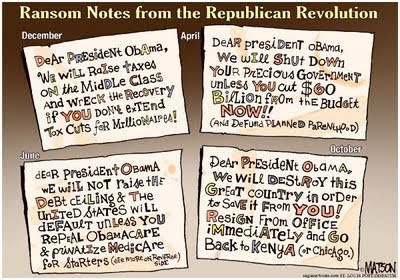 Ransom Notes from the Republican Revolution
December
DEAR PRESIDENT OBAMA,
WE WILL RAISE TAXES
ON THE MIDDLE CLASS
AND WRECK THE RECOVERY
IF YOU DON'T EXTEND
TAX CUTS FOR MILLIONAIRES!
April
DEAR PRESIDENT OBAMA,
WE WILL SHUT DOWN
YOUR PRECIOUS GOVERNMENT
UNLESS YOU CUT $60
BILLION FROM THE BUDGET
NOW!!
(AND DEFUND PLANNED PARENTHOOD)
June
DEAR PRESIDENT OBAMA
WE WILL NOT RAISE THE
DEBT CEILING & THE
UNITED STATES WILL
DEFAULT UNLESS YOU
REPEAL OBAMACARE
& PRIVATIZE MEDICARE
FOR STARTERS (SEE MORE ON REVERSE
SIDE)
October
DEAR PRESIDENT OBAMA,
WE WILL DESTROY THIS
GREAT COUNTRY IN ORDER
TO SAVE IT FROM YOU!
RESIGN FROM OFFICE
IMMEDIATELY AND GO
BACK TO KENYA (OR CHICAGO)
MATSON
ST. LOUIS POST-DISPATCH